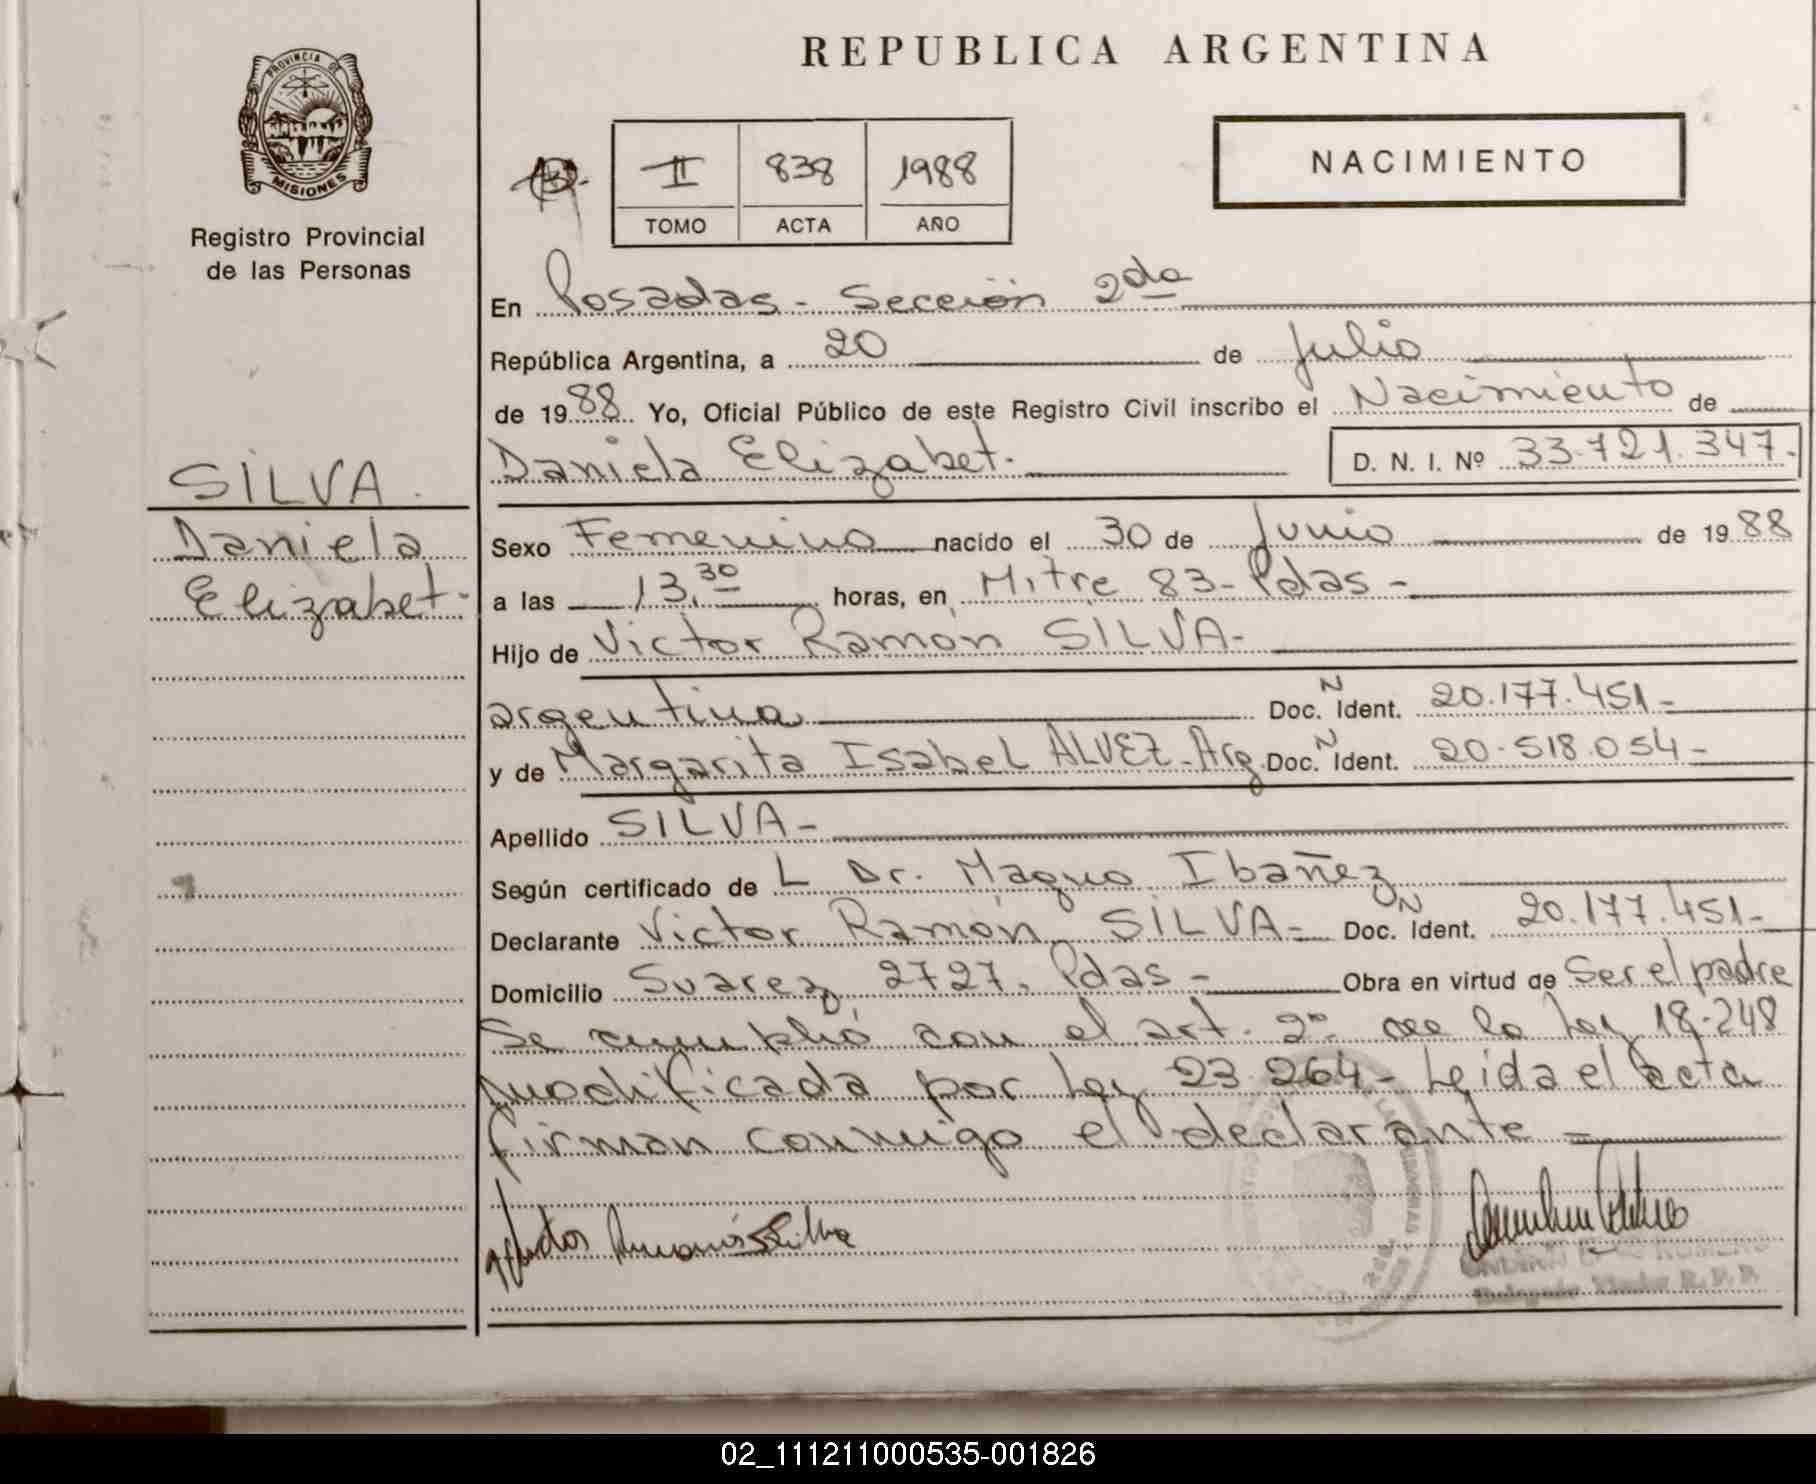 REPUBLICA ARGENTINA
PROVINCIA DE
MISIONES
Registro Provincial
de las Personas
II 838 1988
TOMO ACTA AÑO
NACIMIENTO
En Posadas - Sección 2da
República Argentina, a 20 de Julio
de 1988 Yo, Oficial Público de este Registro Civil inscribo el Nacimiento de
Daniela Elizabet.- D. N. I. Nº 33.721.347.-
SILVA.
Daniela
Elizabet.-
Sexo Femenino nacido el 30 de Junio de 1988
a las 13,30 horas, en Mitre 83 - Pdas -
Hijo de Victor Ramón SILVA -
argentina Doc. N Ident. 20.177.451 -
y de Margarita Isabel ALVEZ - Arg Doc. N Ident. 20.518.054 -
Apellido SILVA -
Según certificado de L Dr. Magno Ibañez
Declarante Victor Ramón SILVA - Doc. N Ident. 20.177.451 -
Domicilio Suarez 2727. Pdas - Obra en virtud de Ser el padre
Se cumplió con el art. 2º de la Ley 18.248
modificada por Ley 23.264 - Leida el acta
firman conmigo el declarante -
02_111211000535-001826